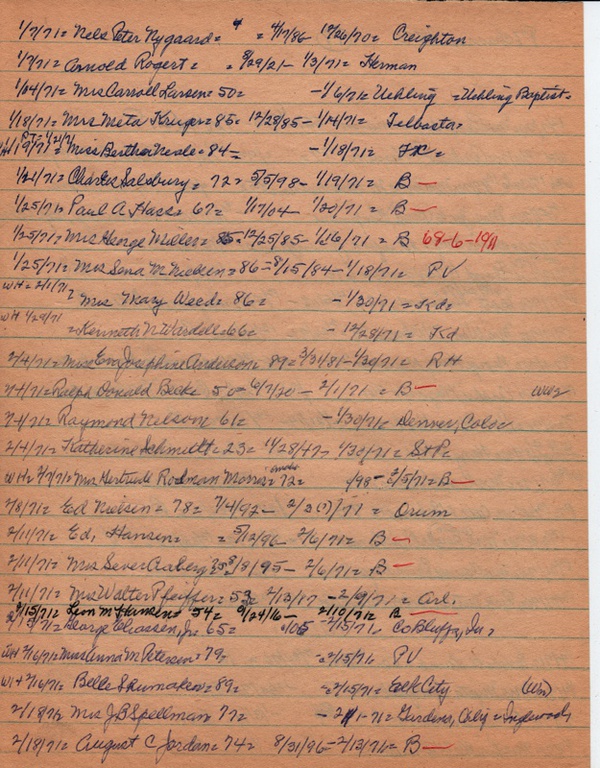 1/7/71= Nels Peter Nygaard= = 4/17/86 10/26/70= Creighton
1/7/71= Arnold Rogert= = 8/29/21- 1/3/71= Herman
1/04/71= Mrs Carroll Larsen= 50= -1/6/71= Uehling =Uehling Baptist=
1/18/71= Mrs Meta Kruger=85= 12/28/85- 1/14/71=
1/21/71
1/19/71= Miss Bertha Neale= 84= -1/18/71=
1/21/71= Charles Salsbury= 72= 5/5/98- 1/19/71= B-
1/25/71= Paul A. Hass= 67= 1/17/04- 1/20/71= B-
1/25/71= Mrs George Miller= 85=12/25/85- 1/16/71= B 68-6-19
1/25/71= Mrs Sena M Nielsen=86=8/15/84-1/18/71= PV
WH= 2/1/71
Mrs Mary Weed= 86= -1/30/71=Kd=
WH 1/29/71
=Kenneth N Wardell=66= -12/28/71= Kd
2/4/71=Miss Eva Josephine Anderson= 89=3/31/81-1/30/71= RH
2/4/71=Ralph Donald Beck= 50= 6/7/20- 2/1/71= B- WW2
2/4/71= Raymond Nelson= 61= -1/30/71= Denver, Colo=
2/4/71= Katherine Schmidt= 23= 11/28/47- 1/30/71= St P=
WH= 2/7/71=Mrs Gertrude Rodman Morris= 72= /98- 2/5/71=B-
2/8/71= Ed Nielsen= 78= 7/4/92- 2/3(?)/71= Orum
2/11/71= Ed. Hansen= = 5/12/96- 2/6/71= B-
2/11/71= Mrs Sever 75= 8/8/95- 2/6/71= B-
2/11/71= Mrs Walter Pfeiffer= 53= 2/13/17 -2/9/71= Arl.
2/15/71= Leon M Hansen= 54= 9/24/16- 2/10/71= B-
/71= George Eliassen, Jr= 65= /05 -2/15/71= Co Bluffs, Ia=
WH 2/16/71=Miss Anna M Petersen=79= =2/15/71= PV
WH 2/16/71= Belle Shumaker=89= -2/15/71= Elk City (Wn)
2/18/71= Mrs J B Spellman= 77= -2/11-71= Gardena, Calif= Inglewood
2/18/71= August C Jordan= 74= 8/31/96-2/13/71= B-